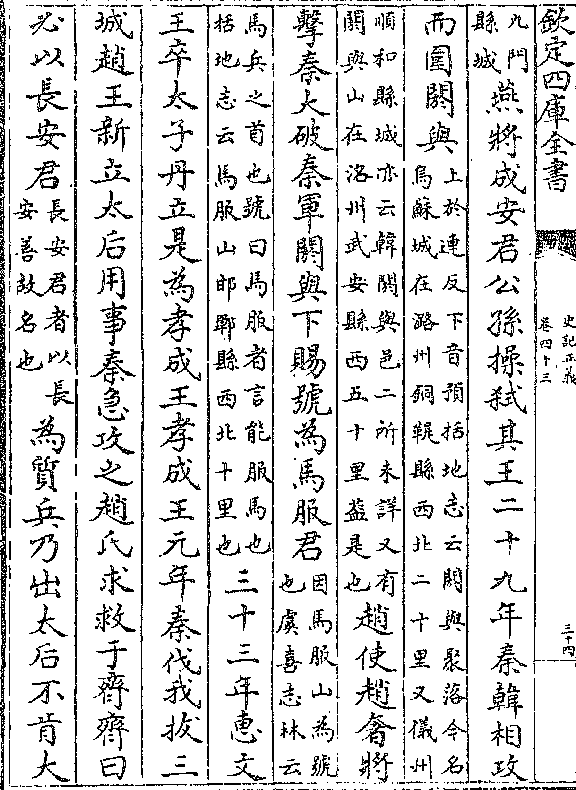 欽定四庫全書
史記正義
卷四十三
三十四
九門
縣城
燕將成安君公孫操弑其王二十九年秦韓相攻
而圍閼與
上於連反下音預括地志云閼與聚落今名
烏蘇城在潞州銅鞮縣西北二十里又儀州
順和縣城亦云韓閼與邑二所未詳又有
閼與山在洺州武安縣西五十里葢是也
趙使趙奢將
擊秦大破秦軍閼與下賜號為馬服君
因馬服山為號
也虞喜志林云
馬兵之首也號曰馬服者言能服馬也
括地志云馬服山邯鄲縣西北十里也
三十三年惠文
王卒太子丹立是為孝成王孝成王元年秦伐我拔三
城趙王新立太后用事秦急攻之趙氏求救于齊齊曰
必以長安君
長安君者以長
安善故名也
為質兵乃出太后不肯大